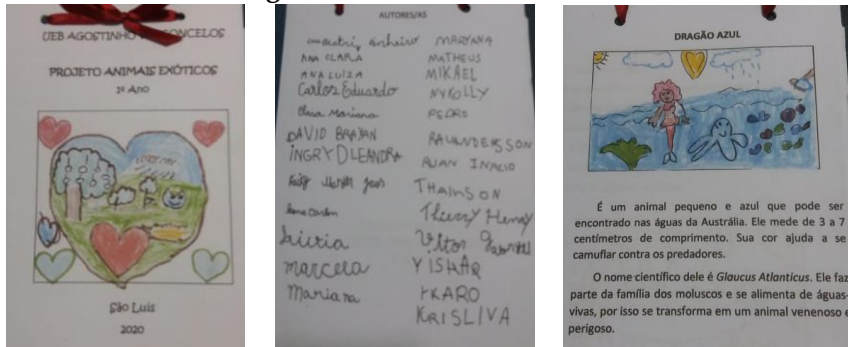 UEB AGOSTINHO CONCELOS
PROJETO ANIMAIS EXÓTICOS
1º Ano
São Luís
2020
AUTORES/AS
MARYANA
ANA CLARA MATHEUS
ANA LUIZA MIKAEL
Carlos Eduardo NYKOLLY
Clara Mariana PEDRO
DAVID BRAYAN
INGRYD LEANDRA RUAN INACIO
THAINSON
Thierry Henry
Vitor Gabriel
marcela
Mariana YKARO
KRISLIVA
DRAGÃO AZUL
É um animal pequeno e azul que pode ser
encontrado nas águas da Austrália. Ele mede de 3 a 7
centímetros de comprimento. Sua cor ajuda a se
camuflar contra os predadores.
O nome científico dele é Glaucus Atlanticus. Ele faz
parte da família dos moluscos e se alimenta de águas-
vivas, por isso se transforma em um animal venenoso e
perigoso.